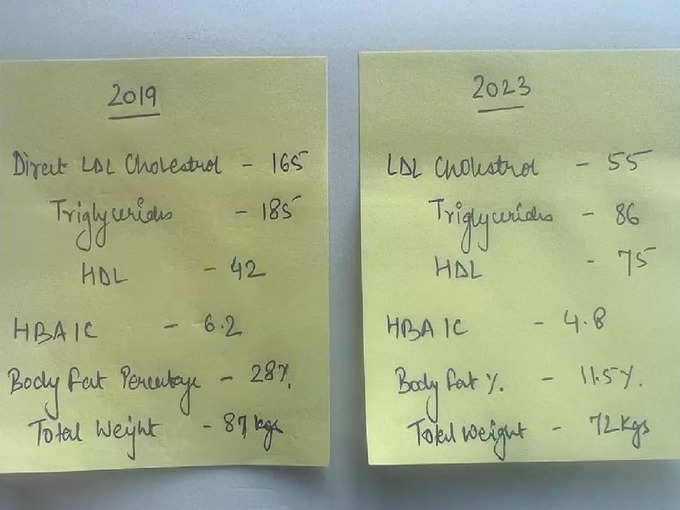 2019
Direct LDL Cholestrol - 165
Triglycerides - 185
HDL - 42
HBA1C - 6.2
Body Fat Percentage - 28%.
Total Weight - 87 kgs
2023
LDL Cholestrol - 55
Triglycerides - 86
HDL - 75
HBA1C - 4.8
Body fat %. - 11.5%.
Total weight - 72 kgs